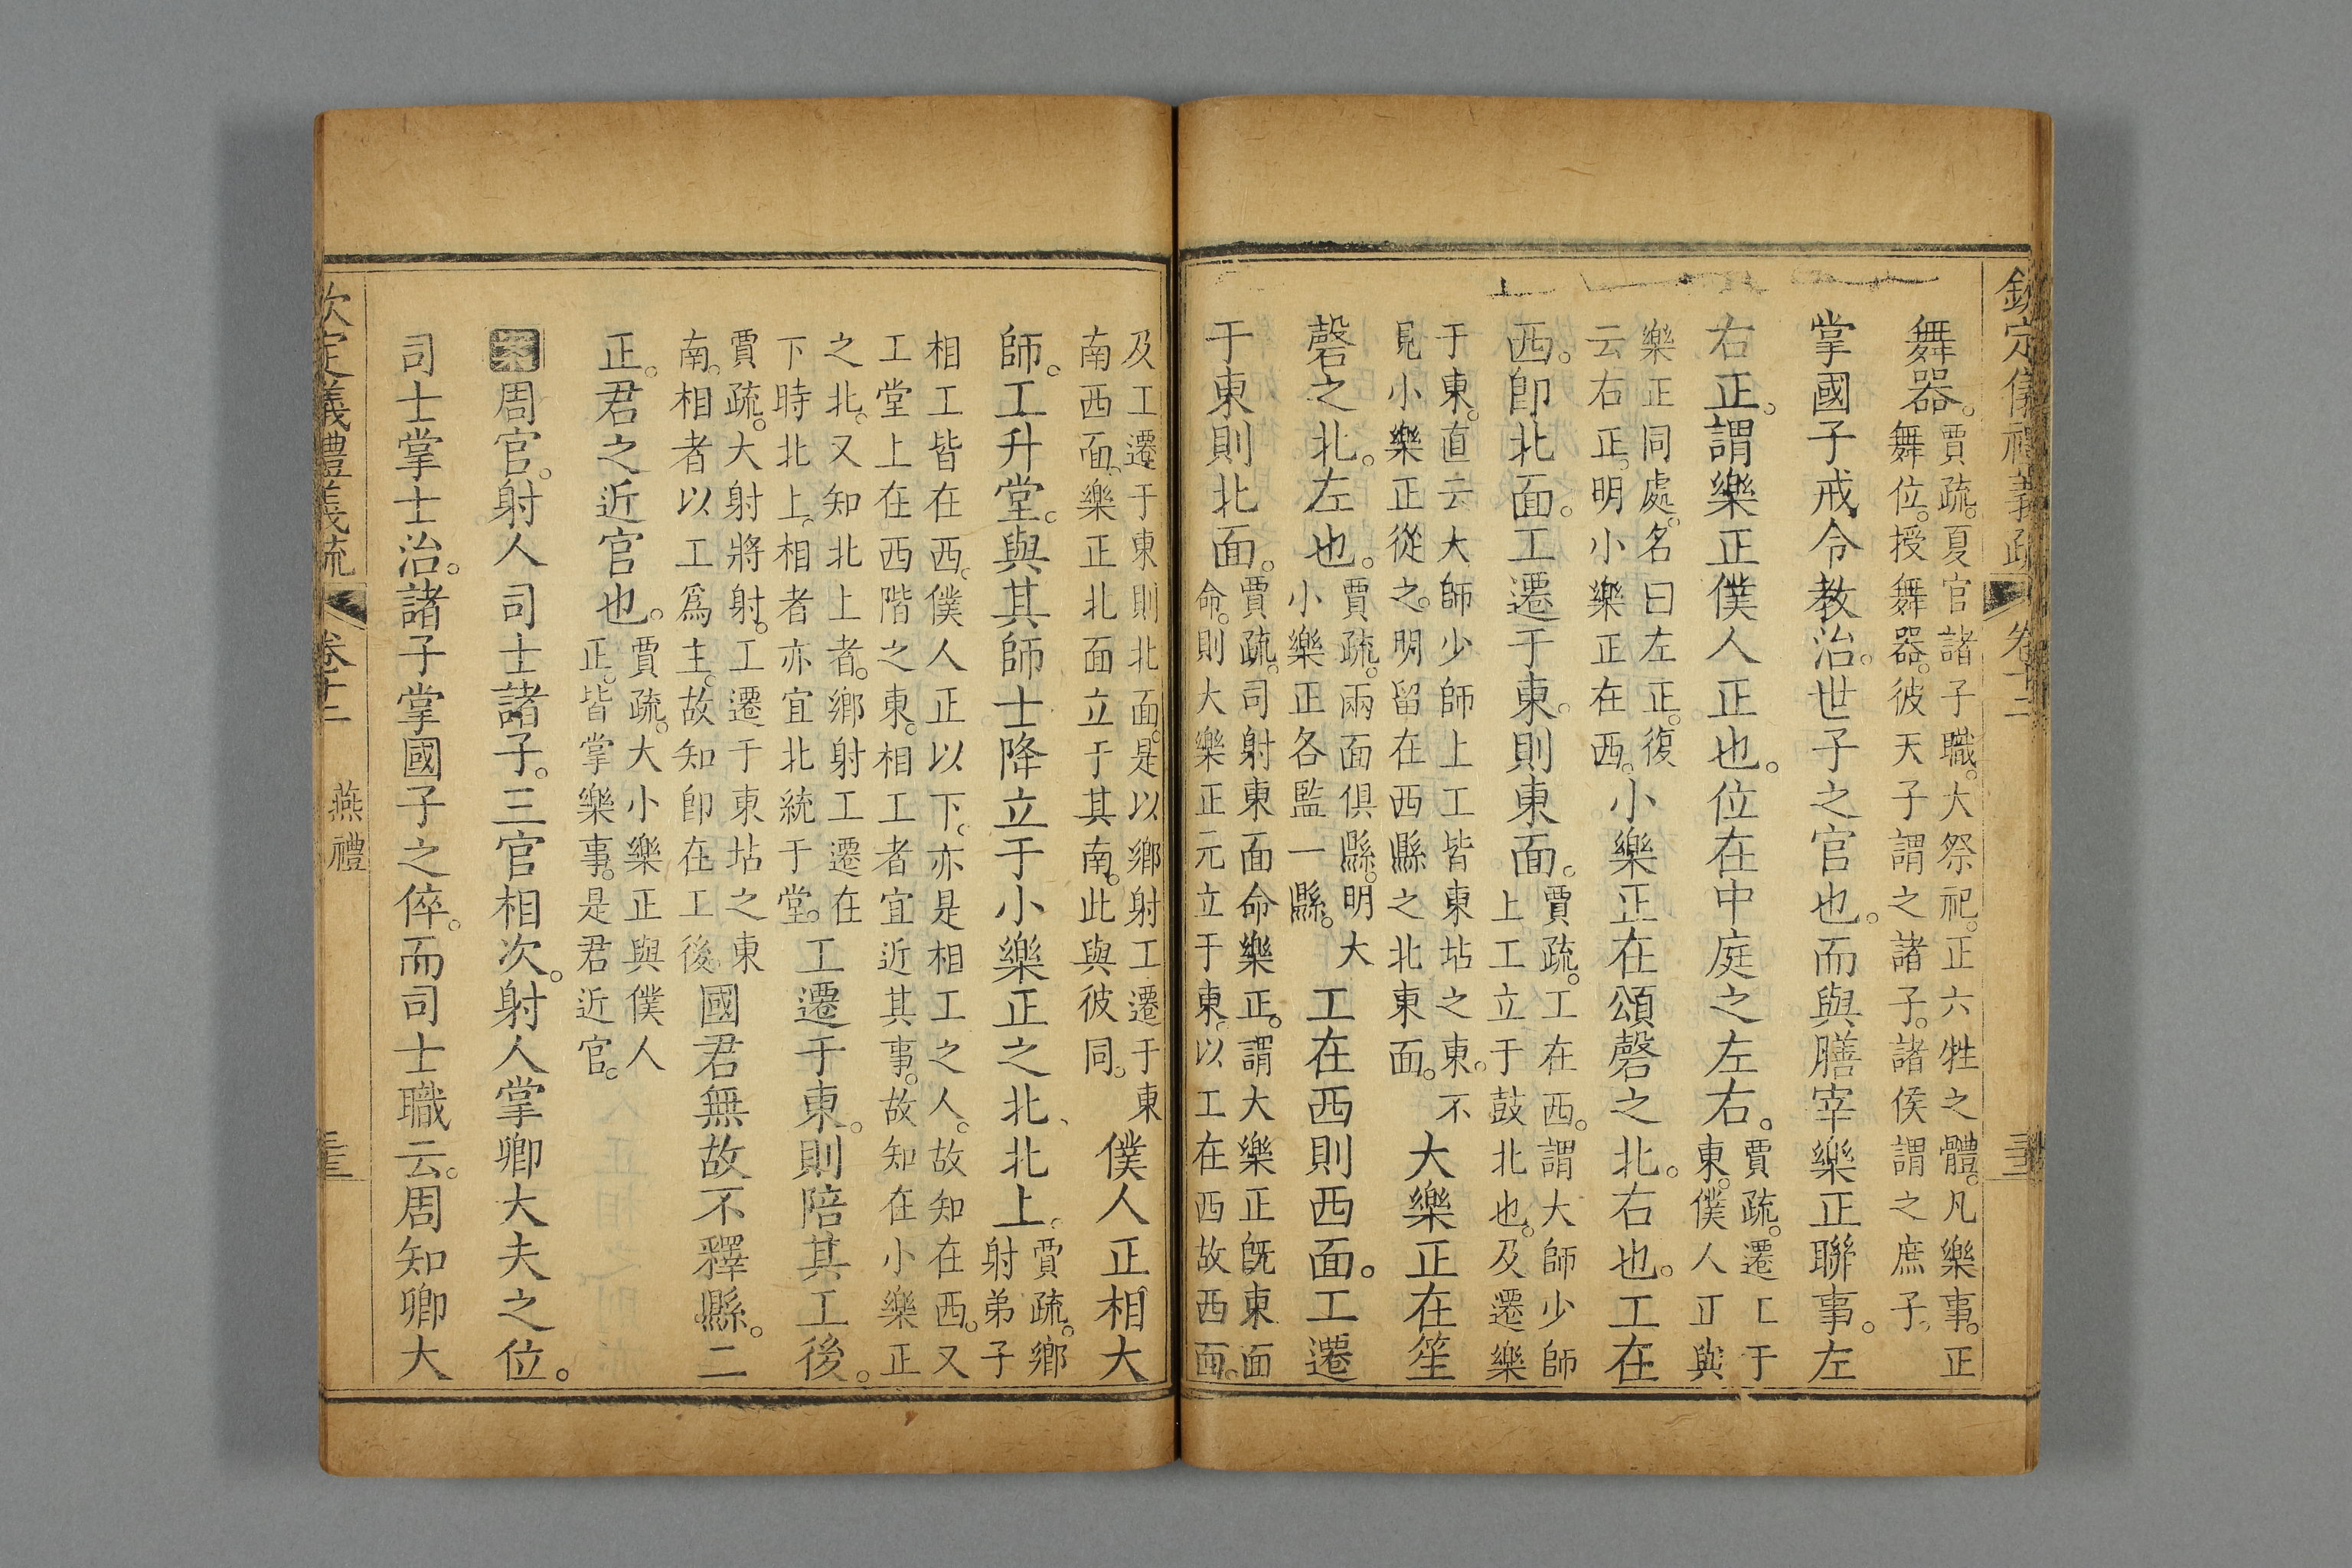 欽定儀禮義疏 卷十二
舞器。賈疏。夏官諸子職。大祭祀。正六牲之體。凡樂事。正
舞位。授舞器。彼天子謂之諸子。諸侯謂之庶子。
掌國子戒令教治。世子之官也。而與膳宰樂正聯事。左
右正。謂樂正僕人正也。位在中庭之左右。賈疏。遷工于
東。僕人正與
樂正同處。名曰左正。復
云右正。明小樂正在西。小樂正在頌磬之北。右也。工在
西。卽北面。工遷于東。則東面。賈疏。工在西。謂大師少師
上工立于鼓北也。及遷樂
于東。直云大師少師上工皆東坫之東。不
見小樂正從之。明留在西縣之北東面。大樂正在笙
磬之北。左也。賈疏。兩面俱縣。明大
小樂正各監一縣。工在西則西面。工遷
于東則北面。賈疏。司射東面命樂正。謂大樂正旣東面
命。則大樂正元立于東。以工在西故西面。
及工遷于東則北面。是以鄉射工遷于東
南西面。樂正北面立于其南。此與彼同。僕人正相大
師。工升堂。與其師士降立于小樂正之北、北上。賈疏。鄉
射弟子
相工皆在西。僕人正以下。亦是相工之人。故知在西。又
工堂上在西階之東。相工者宜近其事。故知在小樂正
之北。又知北上者。鄉射工遷在
下時北上。相者亦宜北統于堂。工遷于東。則陪其工後。
賈疏。大射將射。工遷于東坫之東
南。相者以工爲主。故知卽在工後。國君無故不釋縣。二
正。君之近官也。賈疏。大小樂正與僕人
正。皆掌樂事。是君近官。
周官。射人司士諸子。三官相次。射人掌卿大夫之位。
司士掌士治。諸子掌國子之倅。而司士職云。周知卿大
欽定義禮義疏 卷十二 燕禮